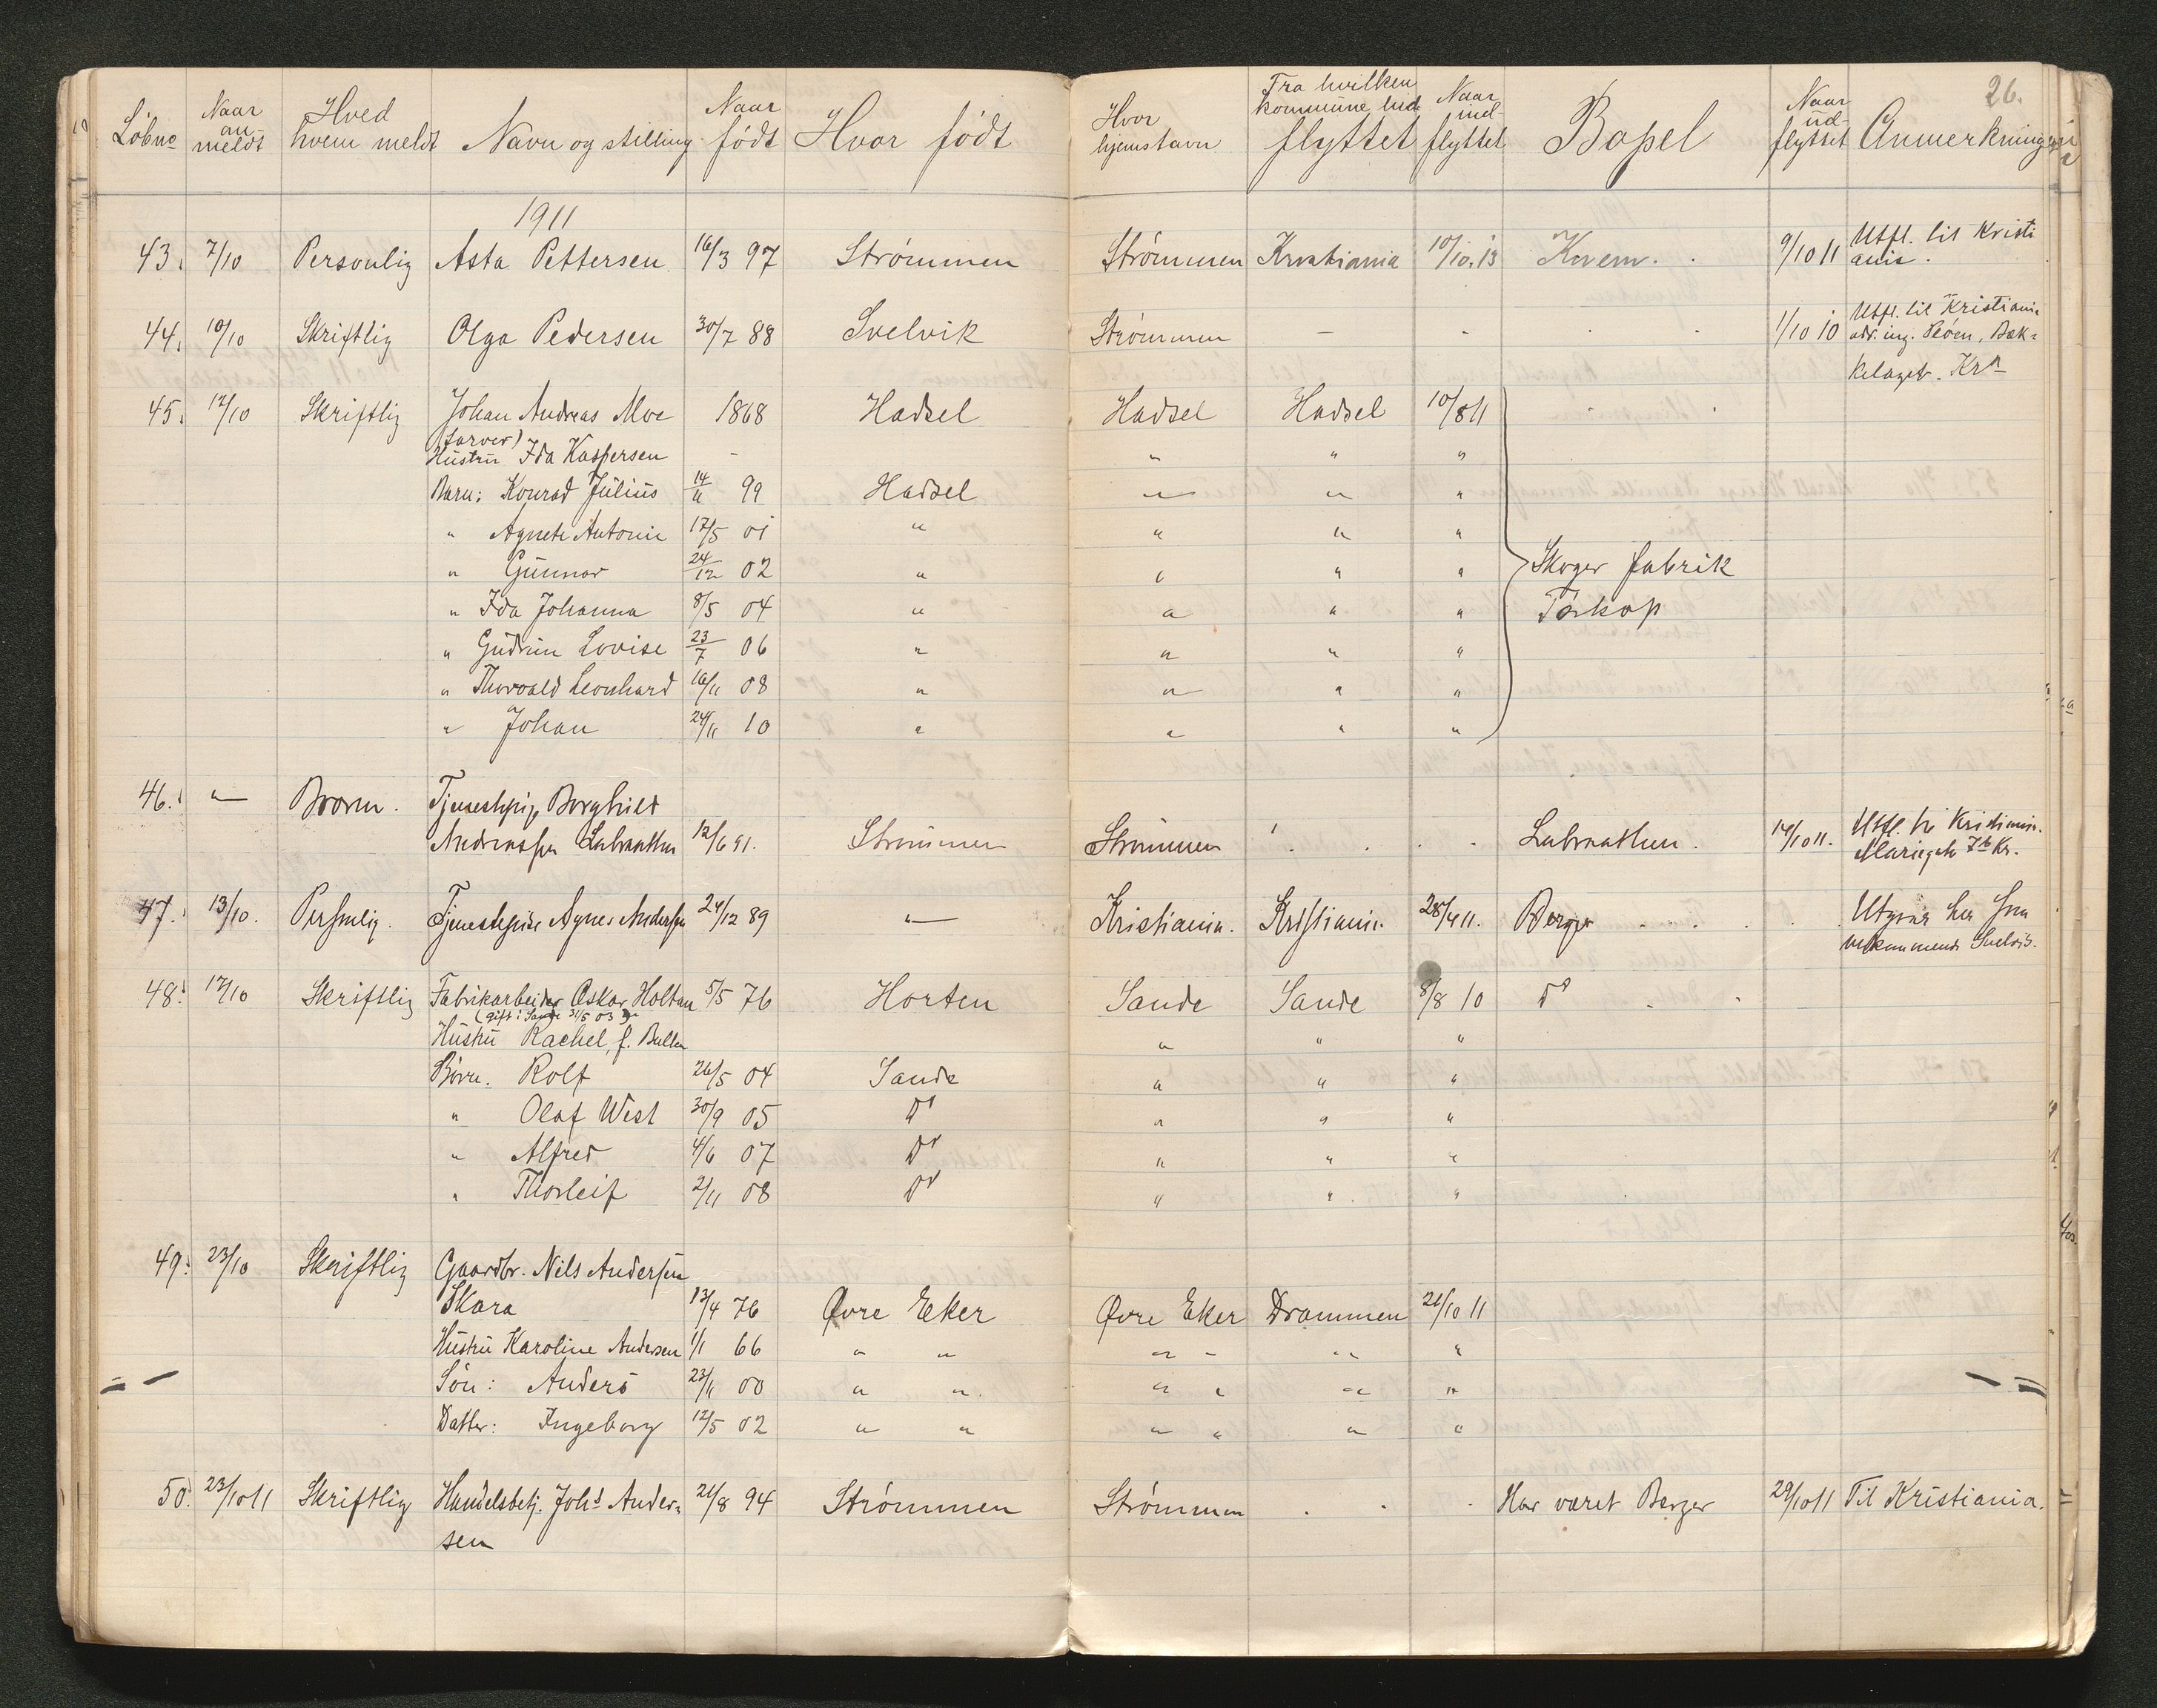 26.
Löbno Naar anmeldt Hved hvem meldt Navn og stilling Naar födt Hvor födt Hvor hjemstavn Fra hvilken kommune ind flyttet Naar ind-flyttet Bopel Naar ud-flyttet Anmerkninger
1911
43. 7/10 Personlig Asta Pettersen 16/3 97 Strömmen Strömmen Kristiania 10/10.13 Knem. 9/10 11 Utfl. til Kristi
ania.
44. 10/10 Skriftlig Olga Pedersen 30/7 88 Svelvik Strömmen - - 1/10 10 Utfl. til Kristiania
adr. ing. Bæk-
kelaget. Kra
45. 12/10 Skriftlig Johan Andreas Moe 1868 Hadsel Hadsel Hadsel 10/8 11
(farver)
Hustru Ida Kaspersen - " " "
Barn: Konrad Julius 14/11 99 Hadsel " " "
" Agnete Antonie 17/5 01 " " " "
" Gunnar 24/12 02 " " " " Skoger fabrik
" Ida Johanna 8/5 04 " " " " Törkop
" Gudrun Lovise 23/7 06 " " " "
" Thorvald Leonhard 16/11 08 " " " "
" Johan 24/11 10 " " " "
46. " Tjenestepige Borghild
Andreassen Labraathen 12/6 91. Strömmen Strömmen Labraathen. 14/10 11. Utfl. til Kristiania.
Mariegate 76 Kr.
47. 13/10. Personlig. Tjenestepige Agnes Andersen 24/12 89 " Kristiania. Kristiania. 28/4 11. Berger
vedkommende Svelvik.
48. 17/10 Skriftlig Fabrikarbeider Oskar Holtan 5/5 76 Horten Sande Sande 8/8 10 Do
(gift i Sande 31/5 03)
Hustru Rachel, f. " " "
Börn. Rolf 26/5 04 Sande " " "
" Olaf West 30/9 05 Do " " "
" Alfred 4/6 07 Do " " "
" Thorleif 2/11 08 Do " " "
49. 23/10 Skriftlig Gaardbr. Nils Andersen
Skara 13/4 76 Øvre Eker Øvre Eker Drammen 21/10 11
Hustru Karoline Andersen 1/1 66 " " " " " "
Sön: Anders 23/11 00 " " " " " "
Datter: Ingeborg 12/5 02 " " " " " "
50. 23/10 11 Skriftlig Handelsbetj. Johs Ander- 21/8 94 Strömmen Strömmen Har været Berger 29/10 11 Til Kristiania.
sen